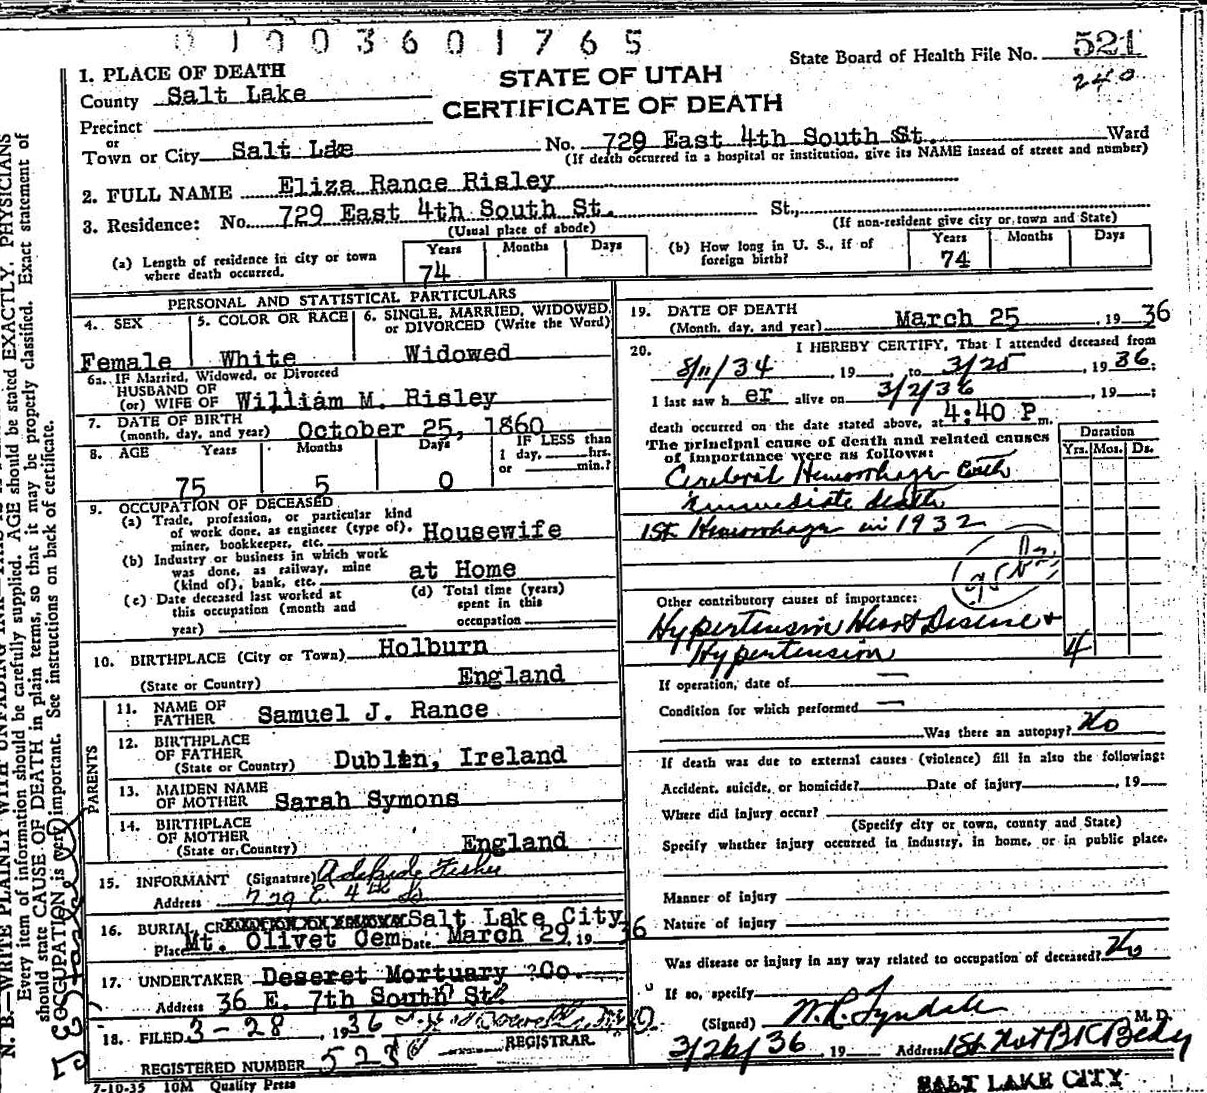 0 1 0 0 3 6 0 1 7 6 5
State Board of Health File No. 521
240
1. PLACE OF DEATH
STATE OF UTAH
County Salt Lake
CERTIFICATE OF DEATH
Precinct
or
Town or City Salt Lake No. 729 East 4th South St. Ward
(If death occurred in a hospital or institution, give its NAME insead of street and number)
2. FULL NAME Eliza Rance Risley
3. Residence: No. 729 East 4th South St. St.,
(Usual place of abode) (If non-resident give city or town and State)
(a) Length of residence in city or town where death occurred. Years 74 Months Days
(b) How long in U. S., if of foreign birth? Years 74 Months Days
PERSONAL AND STATISTICAL PARTICULARS
4. SEX 5. COLOR OR RACE 6. SINGLE, MARRIED, WIDOWED, or DIVORCED (Write the Word)
Female White Widowed
6a. IF Married, Widowed, or Divorced
HUSBAND OF
(or) WIFE OF William M. Risley
7. DATE OF BIRTH
(month, day, and year) October 25, 1860
8. AGE Years Months Days IF LESS than
1 day, hrs.
or min.?
75 5 0
9. OCCUPATION OF DECEASED
(a) Trade, profession, or particular kind
of work done, as engineer (type of), Housewife
miner, bookkeeper, etc.
(b) Industry or business in which work
was done, as railway, mine at Home
(kind of), bank, etc.
(c) Date deceased last worked at
this occupation (month and
year)
(d) Total time (years)
spent in this
occupation
10. BIRTHPLACE (City or Town) Holburn
(State or Country) England
PARENTS
11. NAME OF
FATHER Samuel J. Rance
12. BIRTHPLACE
OF FATHER
(State or Country) Dublin, Ireland
13. MAIDEN NAME
OF MOTHER Sarah Symons
14. BIRTHPLACE
OF MOTHER
(State or Country) England
15. INFORMANT (Signature) Adelaide Fisher
Address 729 E. 4th So
16. BURIAL, Salt Lake City
Place Mt. Olivet Cem Date March 29, 19 36
17. UNDERTAKER Deseret Mortuary Co.
Address 36 E. 7th South St
18. FILED 3-28, 1936
REGISTRAR
REGISTERED NUMBER 523
7-10-35 10M Quality Press
19. DATE OF DEATH
(Month, day, and year) March 25, 19 36
20. I HEREBY CERTIFY, That I attended deceased from
8/11/34, 19 , to 3/25, 1936;
I last saw h er alive on 3/2/36, 19 ;
death occurred on the date stated above, at 4:40 P m.
The principal cause of death and related causes
of importance were as follows:
Duration
Yrs. Mos. Ds.
Cerebral Hemorrhage with
immediate death
1st Hemorrhage in 1932
Other contributory causes of importance:
Hypertension Heart Disease +
Hypertension 4
If operation, date of —
Condition for which performed —
Was there an autopsy? No
If death was due to external causes (violence) fill in also the following:
Accident, suicide, or homicide? Date of injury , 19
Where did injury occur?
(Specify city or town, county and State)
Specify whether injury occurred in industry, in home, or in public place.
Manner of injury
Nature of injury
Was disease or injury in any way related to occupation of deceased? No
If so, specify
(Signed) W. R. Tyndale M. D.
3/26/36, 19 Address 1st Nat Bk Bldg
SALT LAKE CITY
N. B.—WRITE PLAINLY WITH UNFADING INK
Every item of information should be carefully supplied. AGE should be stated EXACTLY. PHYSICIANS
should state CAUSE OF DEATH in plain terms, so that it may be properly classified. Exact statement of
OCCUPATION is very important. See instructions on back of certificate.